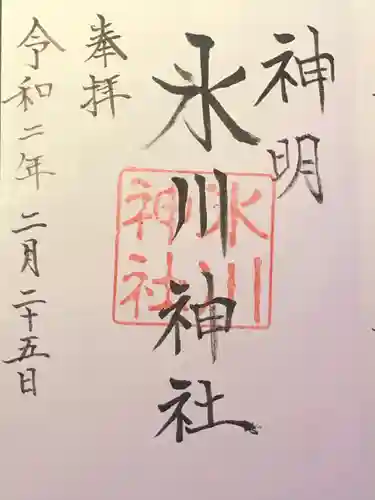 神明
氷川神社
奉拝
令和二年 二月 二十五日
氷川
神社